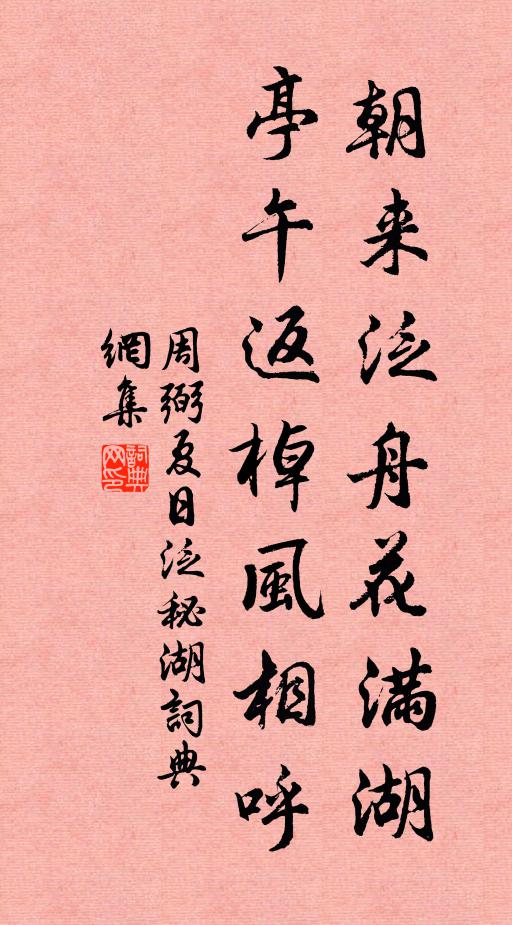 朝来泛舟花满湖
亭午返棹風相呼
周弼夏日泛秘湖詞典
網集
詞典
网印